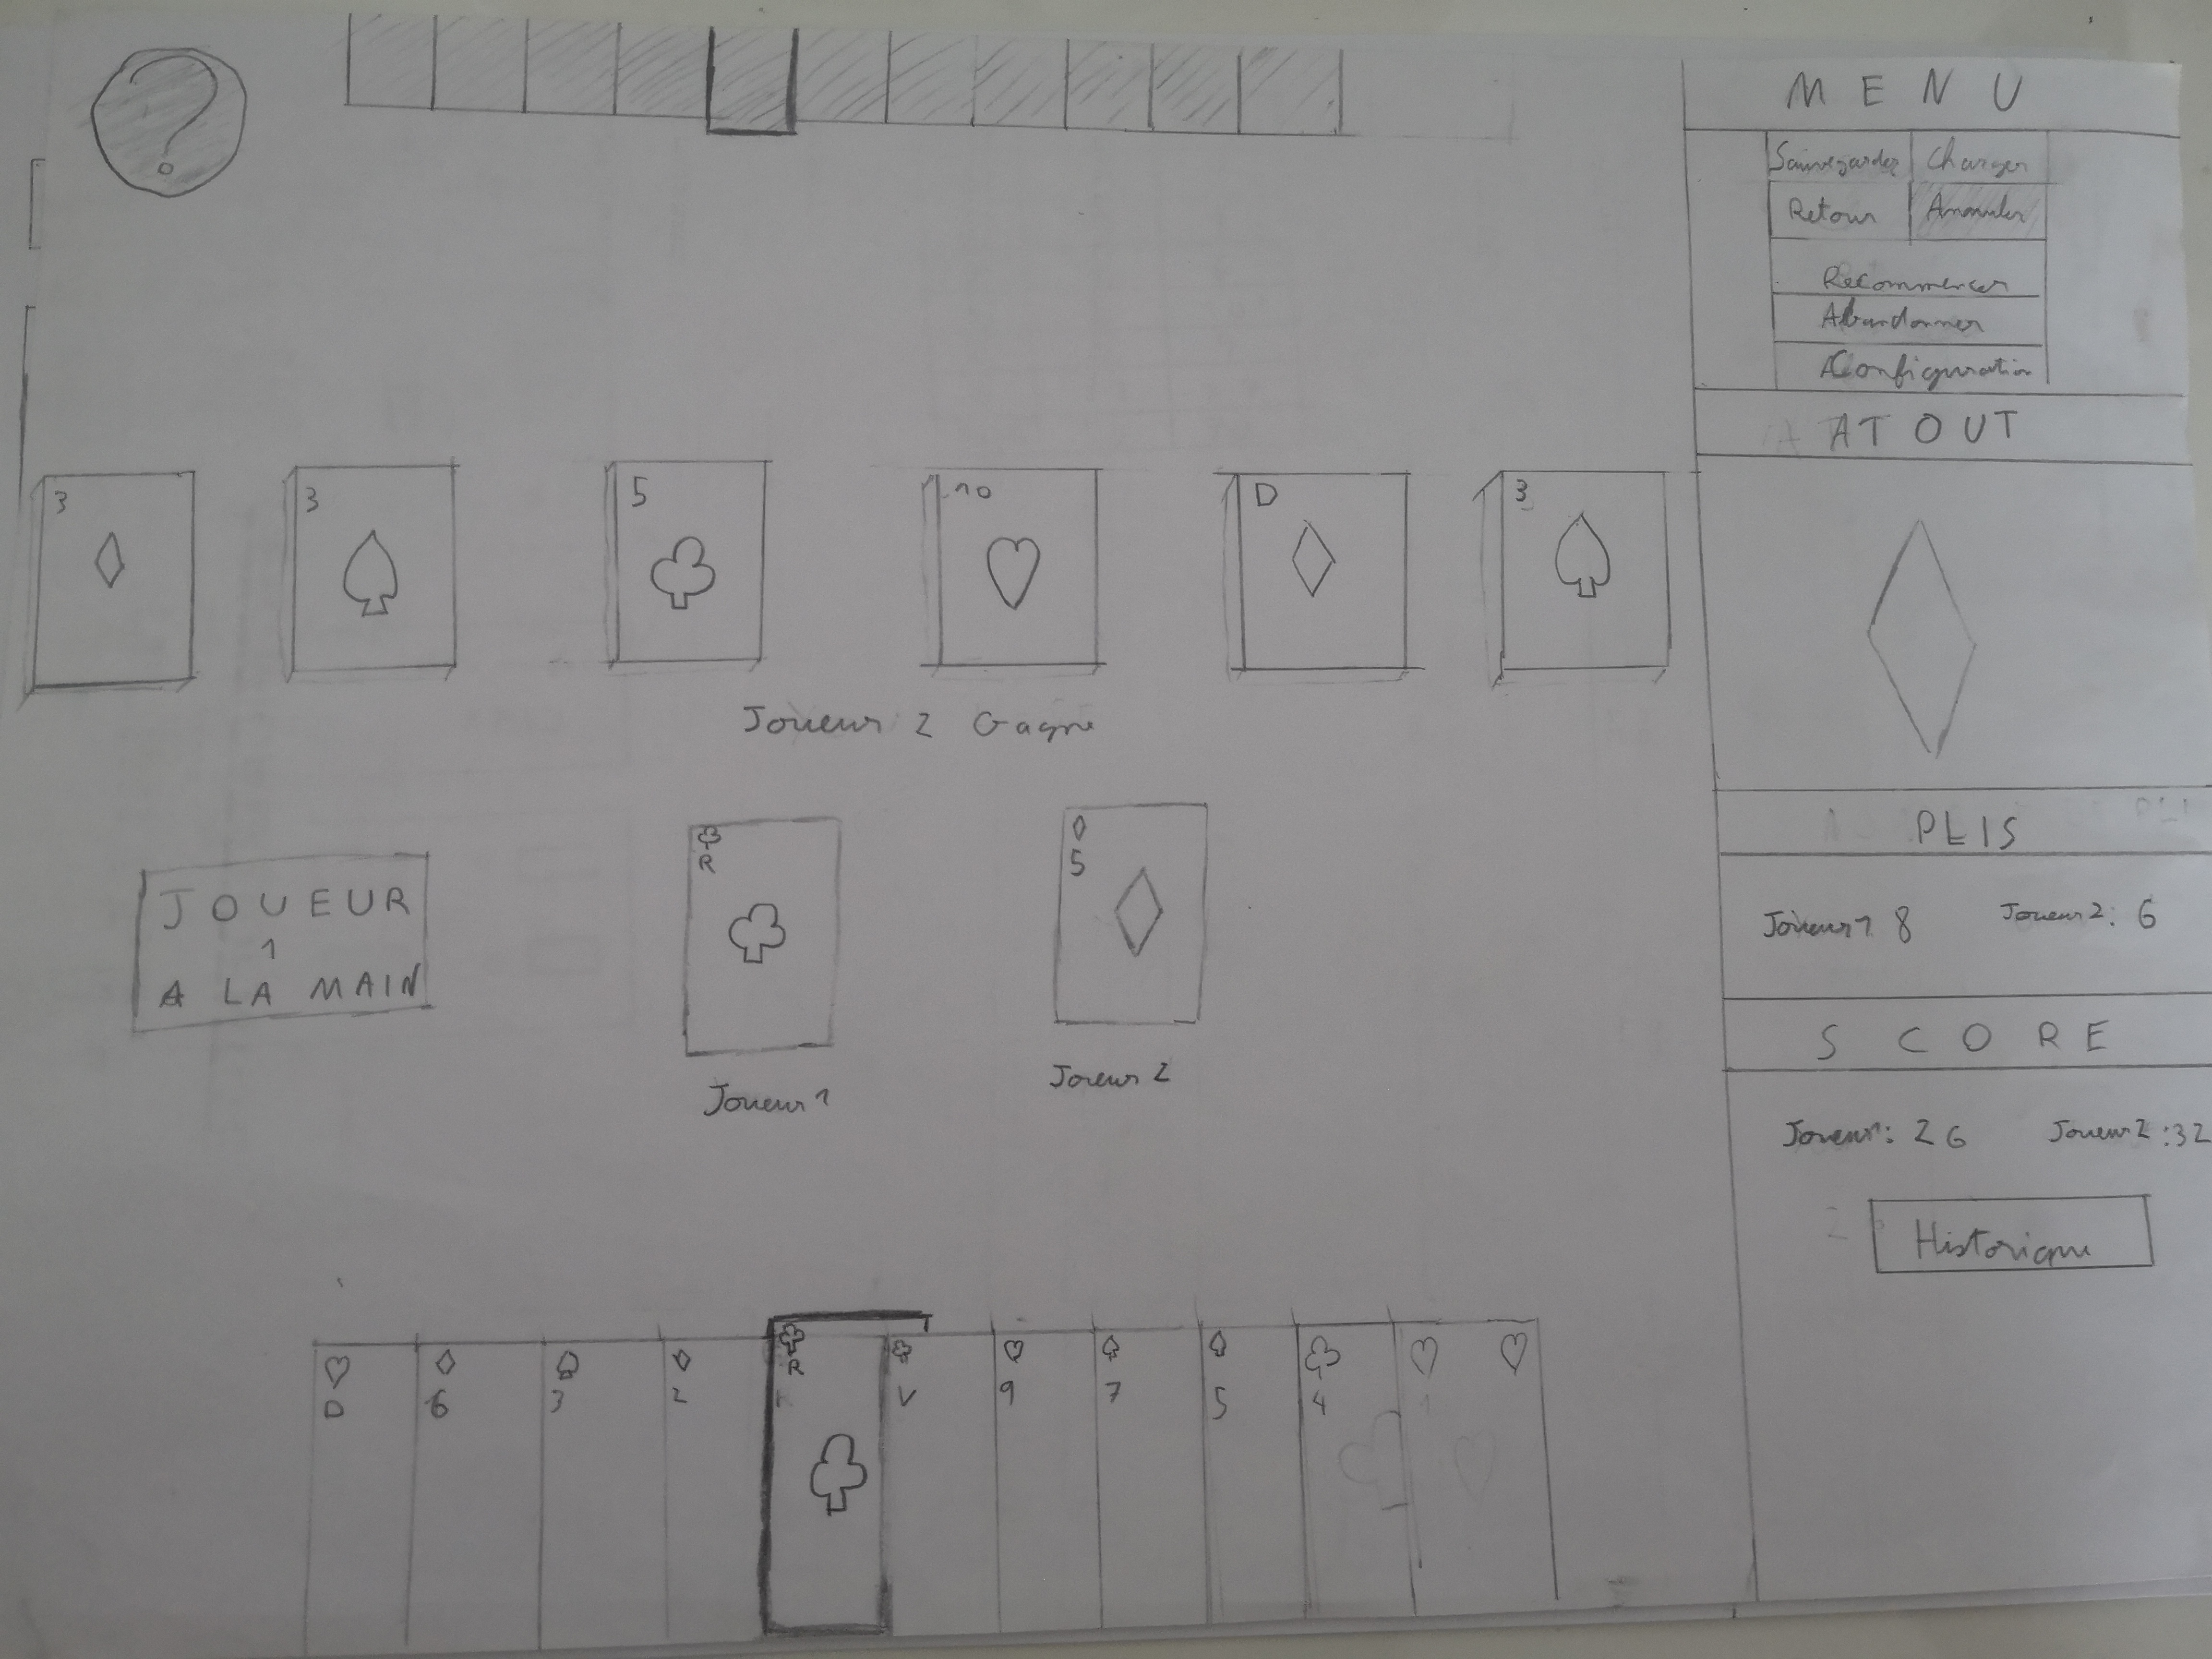 ?
MENU
Sauvegarder Charger
Retour Annuler
Recommencer
Abandonner
Configuration
ATOUT
3 3 5 10 D 3
Joueur 2 Gagne
PLIS
Joueur 1 8 Joueur 2: 6
JOUEUR
1
A LA MAIN
R 5
Joueur 1 Joueur 2
SCORE
Joueur1: 26 Joueur 2: 32
Historique
D 6 3 2 R V 9 7 5 4 1